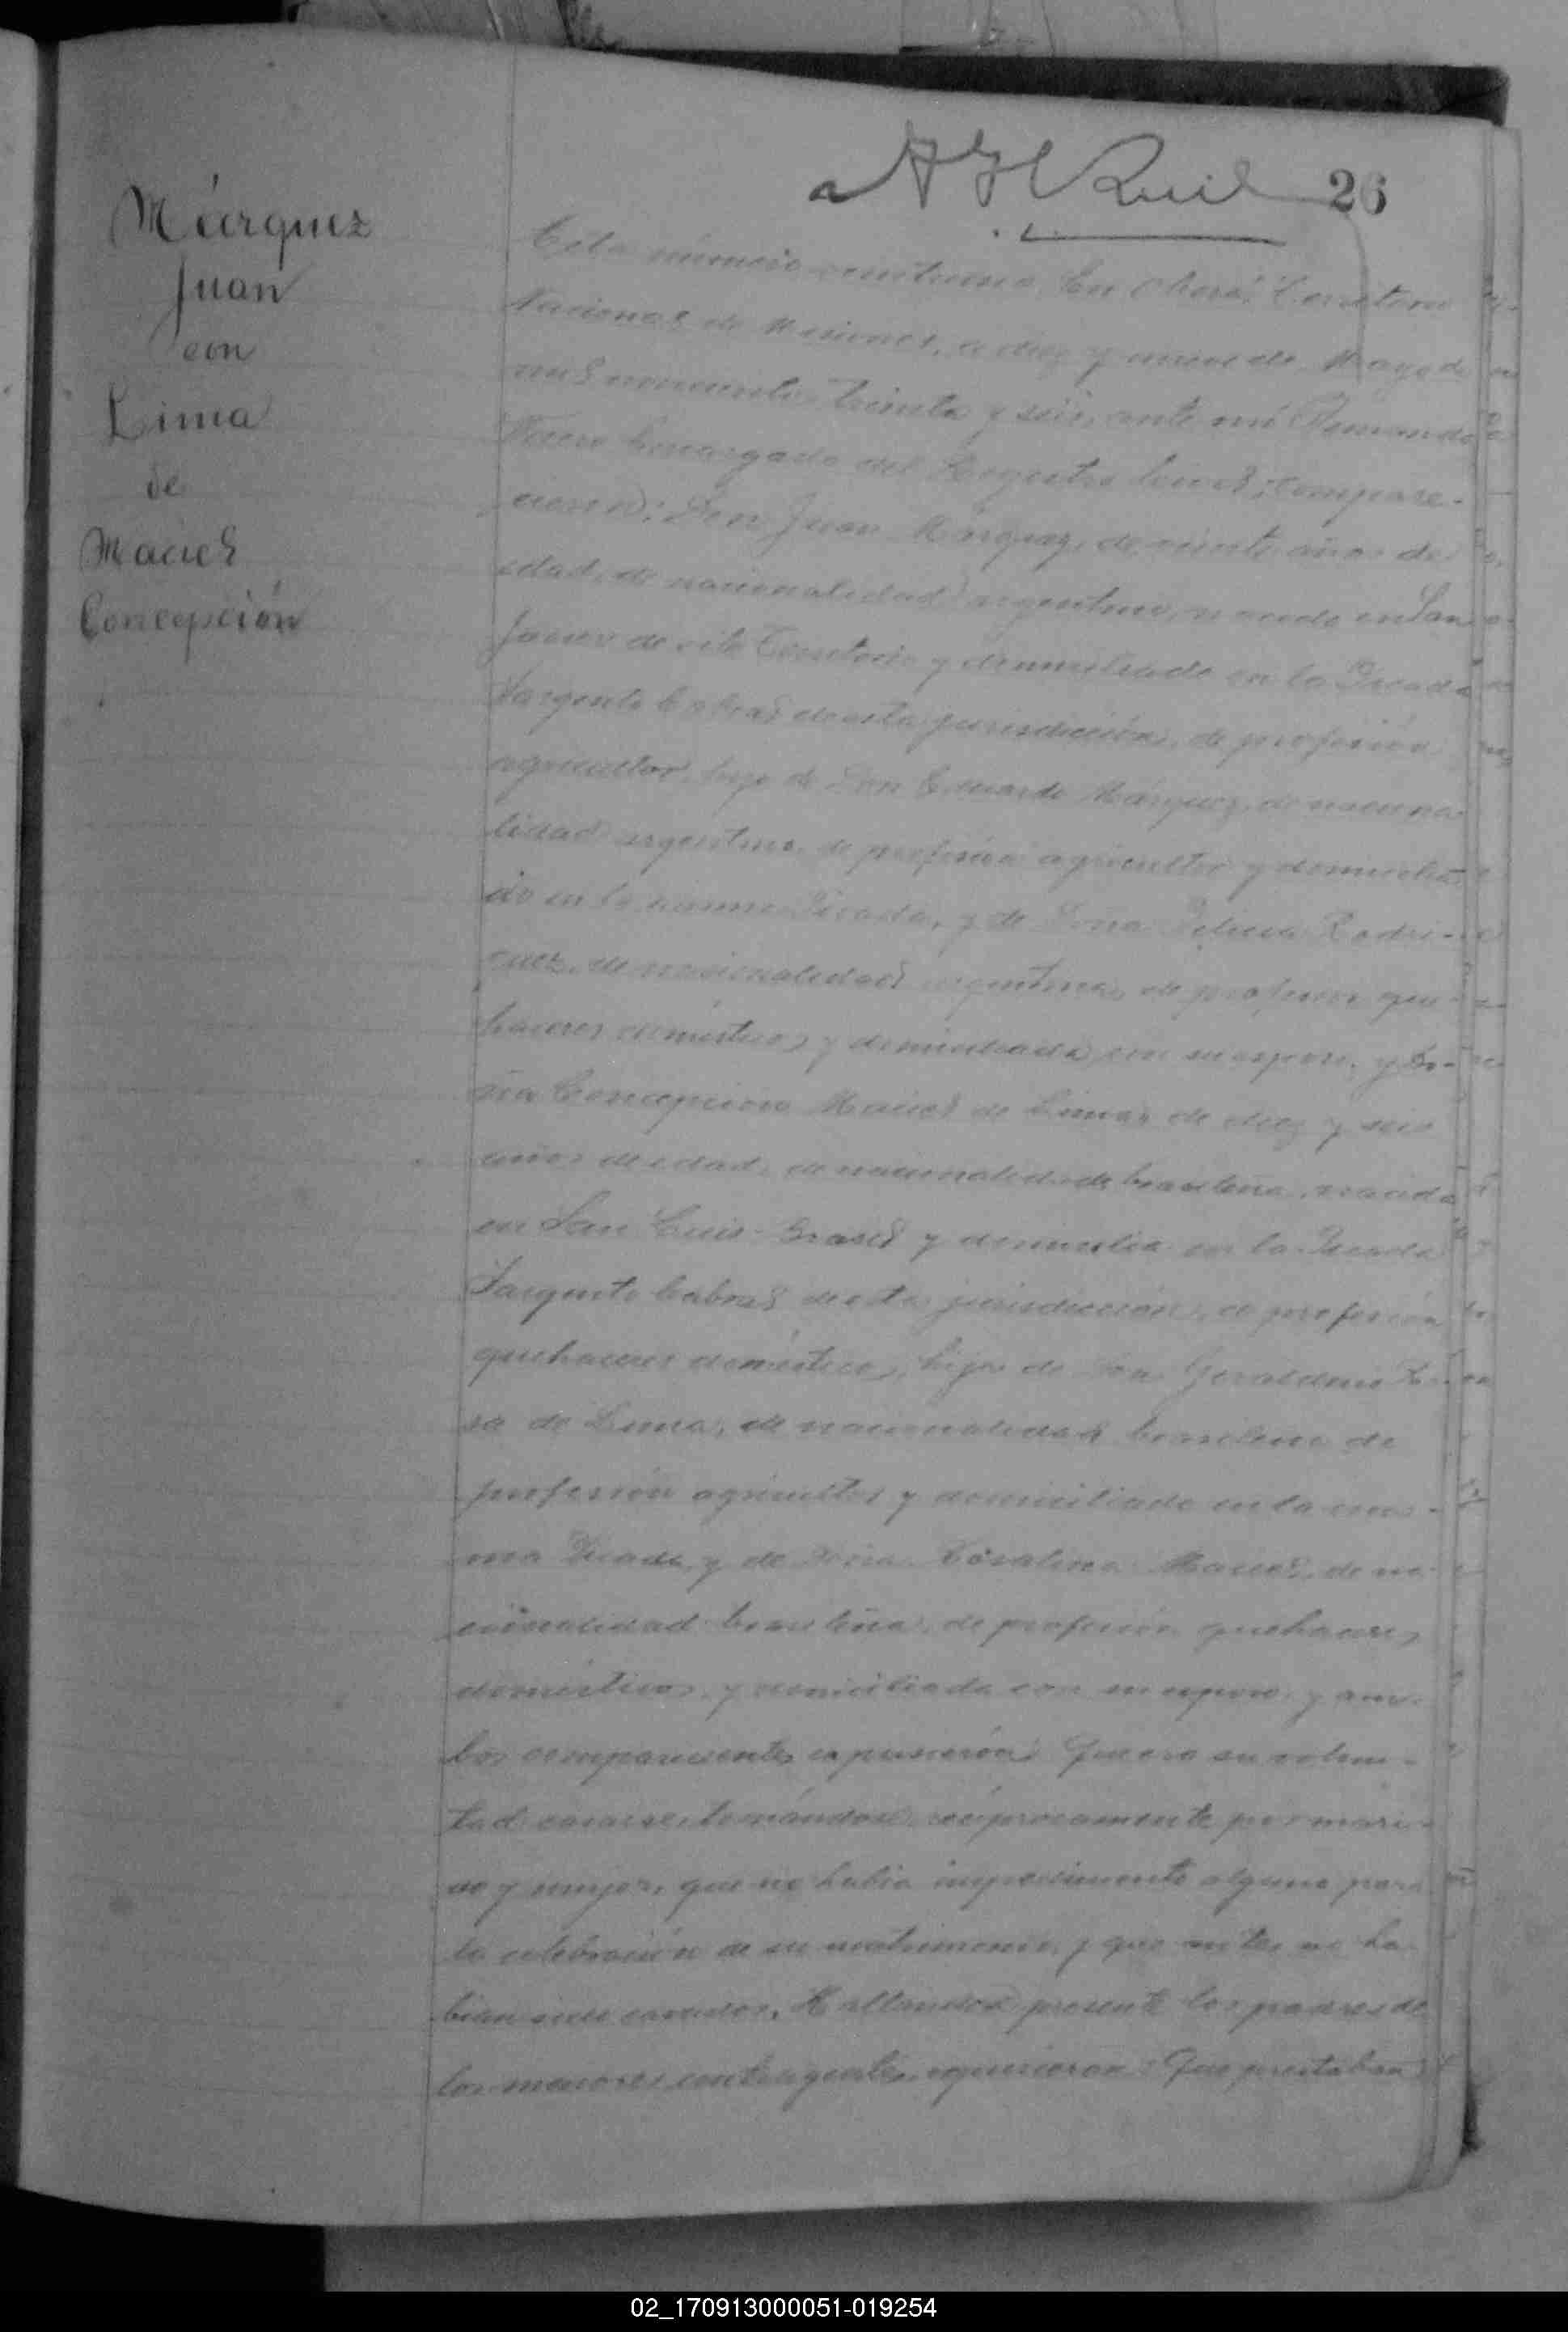 26
Márquez
Juan
con
Lima
de
Maciel
Concepción
Acta número veintiuno. En Oberá, Territorio
Nacional de Misiones, a diez y nueve de Mayo de
mil novecientos treinta y seis, ante mí Fernando
Encargado del Registro Civil; compare-
cieron: Don Juan Márquez, de veinte años de
edad, de nacionalidad argentino, nacido en San
Javier de este Territorio y domiciliado en la Picada
Sargento Cabral de esta jurisdicción, de profesión
agricultor, hijo de Don Eduardo Márquez, de naciona-
lidad argentino, de profesión agricultor y domicilia-
do en la misma Picada, y de Doña Felicia Rodri-
guez, de nacionalidad argentina, de profesión que-
haceres domésticos y domiciliada con su esposo; y Do-
ña Concepción Maciel de Lima, de diez y seis
años de edad, de nacionalidad brasileña, nacida
en San Luis-Brasil y domicilia en la Picada
Sargento Cabral de esta jurisdicción, de profesión
quehaceres domésticos, hija de Don
de Lima, de nacionalidad brasileno de
profesión agricultor y domiciliado en la mis-
ma Picada, y de Doña Maciel, de na-
cionalidad brasileña, de profesión quehaceres
domésticos, y domiciliada con su esposo; y am-
bos comparecientes expusieron: Que era su volun-
tad casarse, tomándose recíprocamente por mari-
do y mujer, que no había impedimento alguno para
la celebración de su matrimonio, y que antes no ha-
bían sido casados. Hallandose presente los padres de
los menores contrayentes, expusieron: Que prestaban
02_170913000051-019254